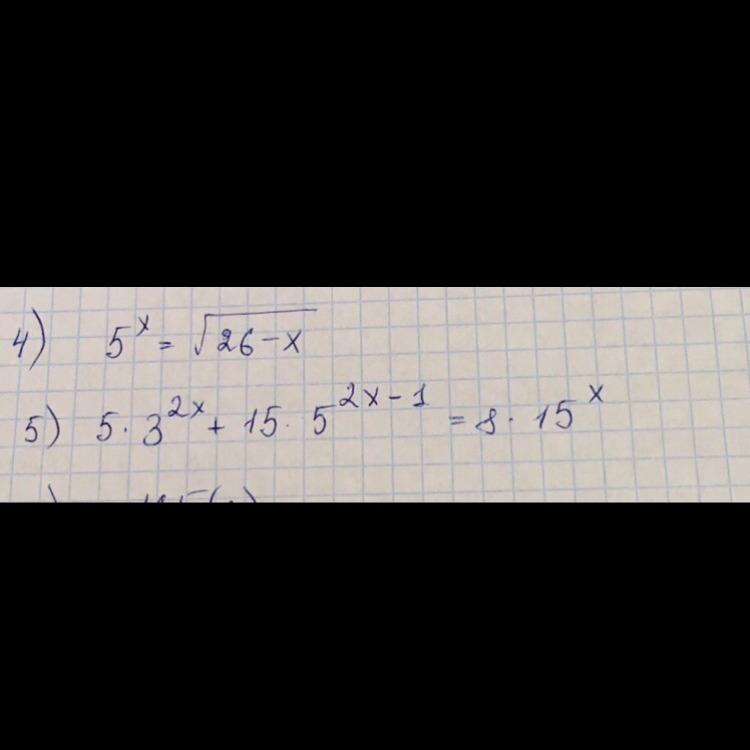 4) 5^x = √(26-x)
5) 5 · 3^(2x) + 15 · 5^(2x-1) = 8 · 15^x